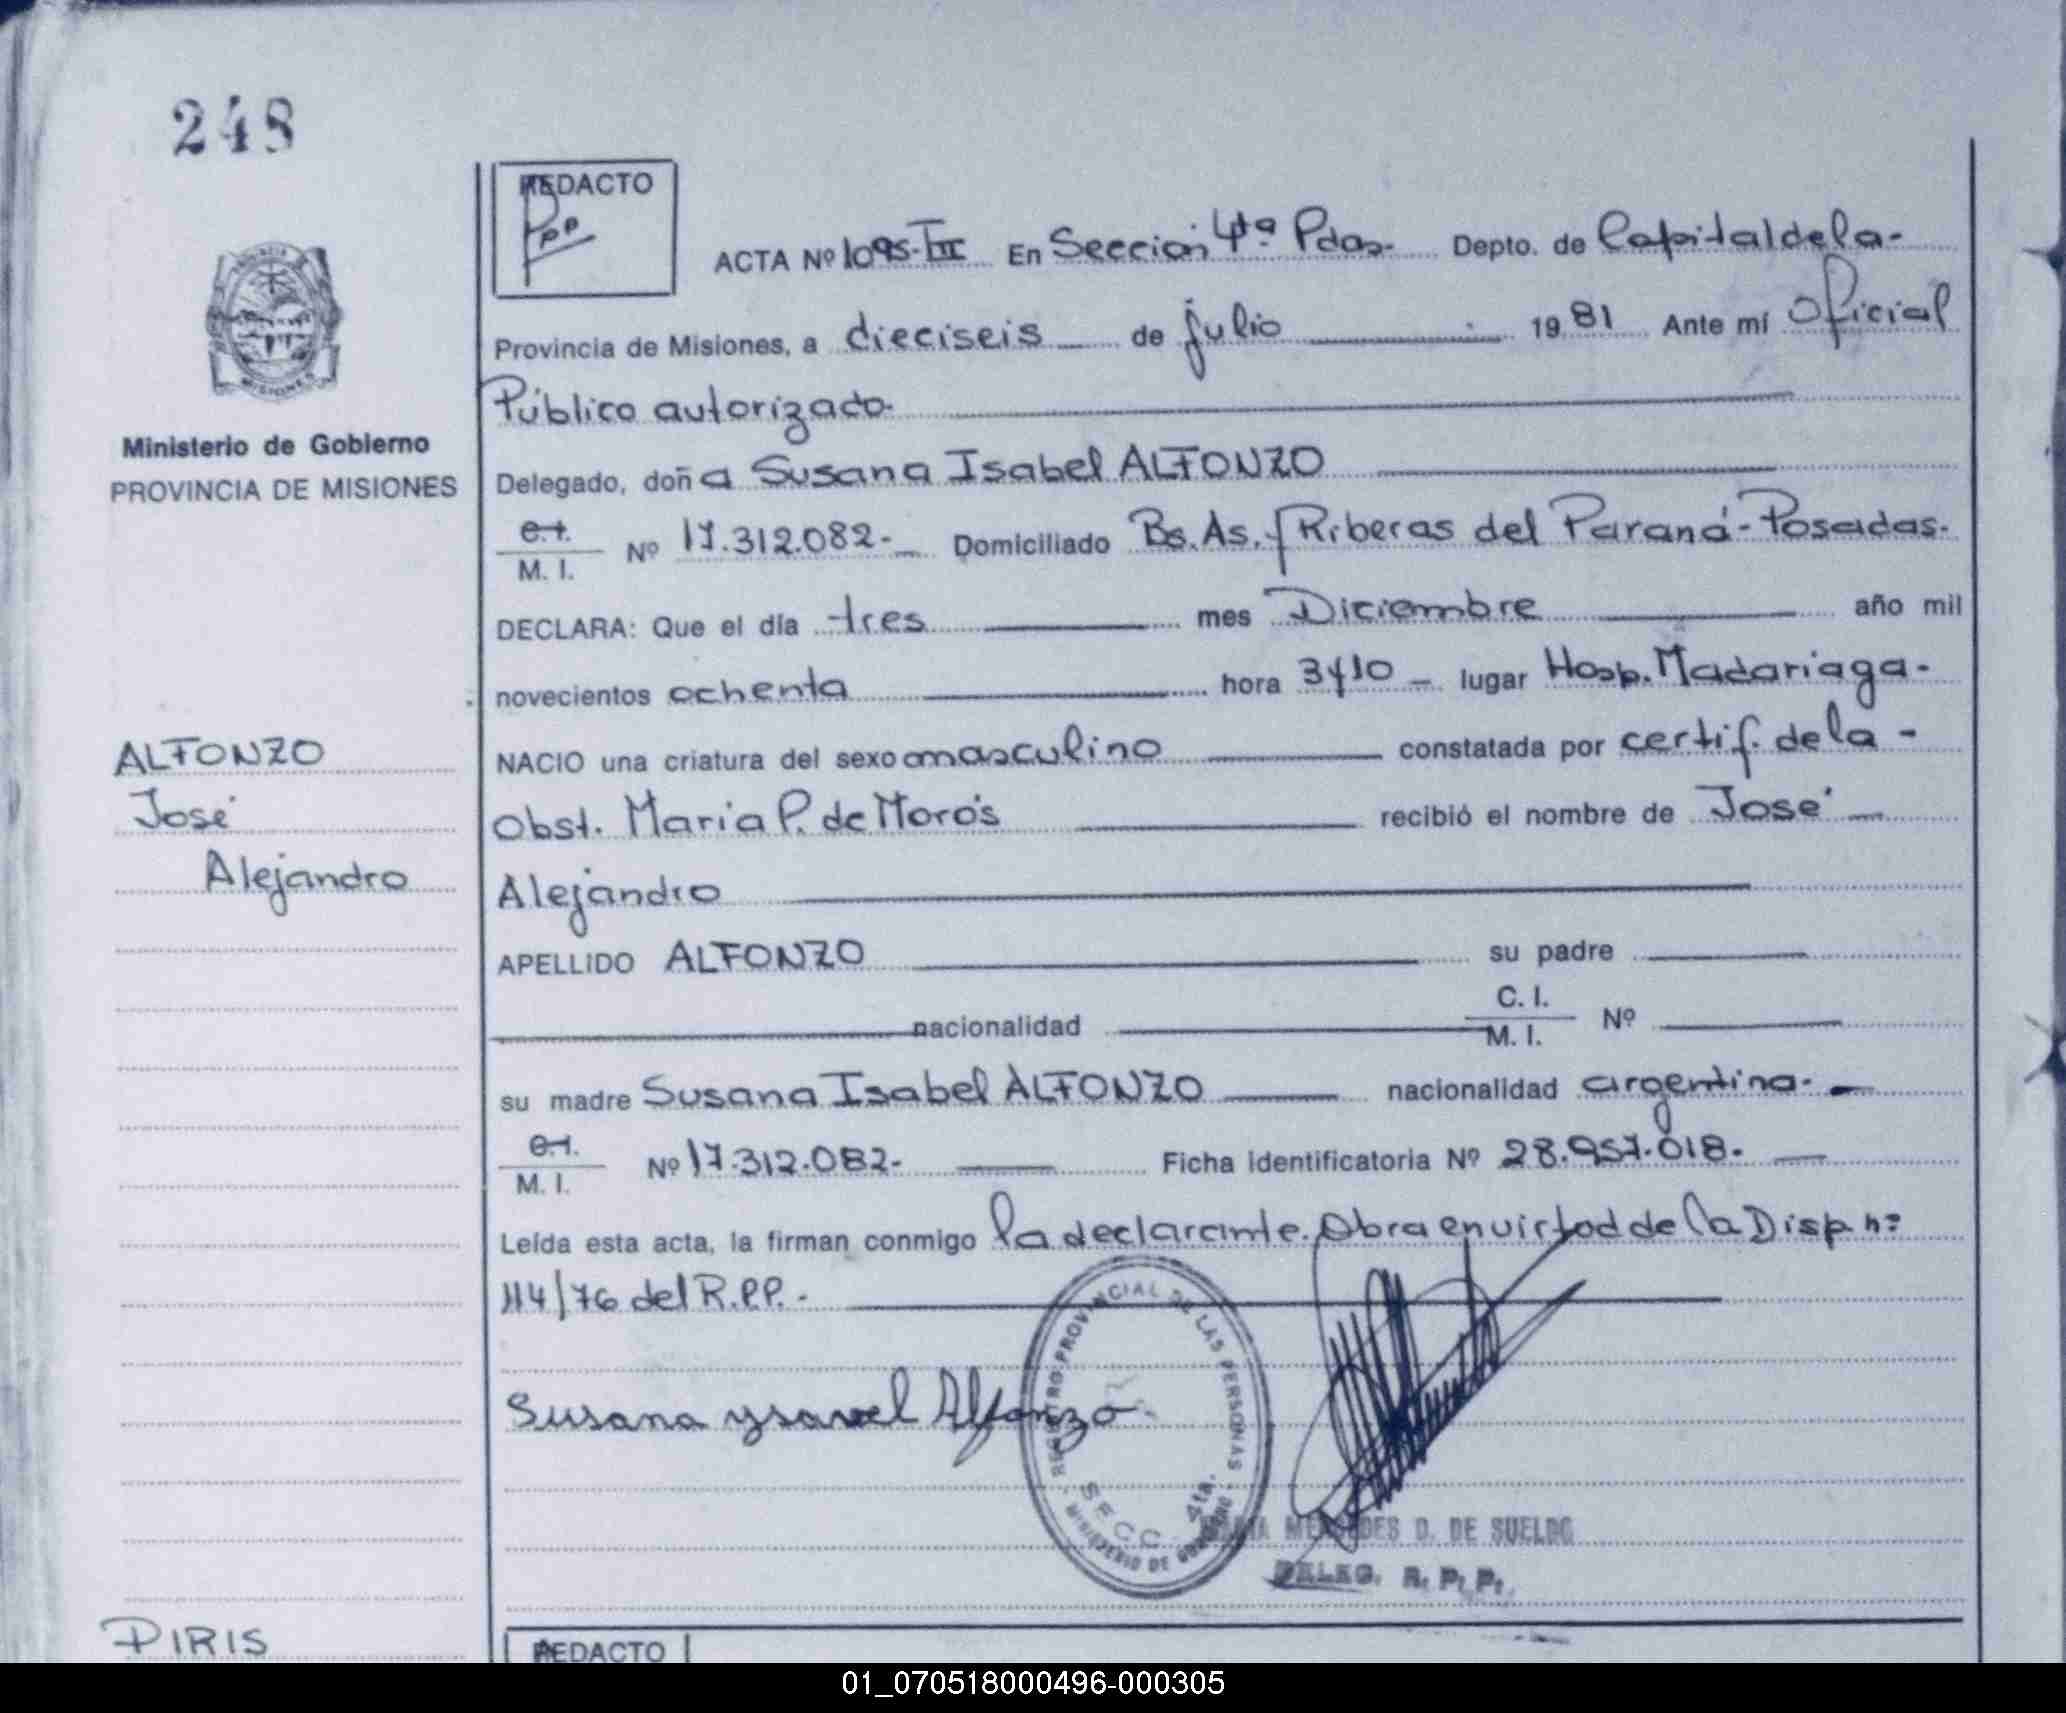 248
REDACTO
ACTA Nº 1095-III En Sección 4ta Pdas.- Depto. de Capital de la-
Provincia de Misiones, a dieciseis de julio 19 81 Ante mí Oficial
Público autorizado.
Ministerio de Gobierno
PROVINCIA DE MISIONES
Delegado, doña Susana Isabel ALFONZO
C.I.
M. I. Nº 17.312.082.- Domiciliado Bs.As. y Riberas del Paraná-Posadas.
DECLARA: Que el día tres mes Diciembre año mil
novecientos ochenta hora 3y10 lugar Hosp. Madariaga.
ALFONZO
José
Alejandro
NACIO una criatura del sexo masculino constatada por certif. de la -
Obst. Maria P. de Morós recibió el nombre de José
Alejandro
APELLIDO ALFONZO su padre
nacionalidad C. I.
M. I. Nº
su madre Susana Isabel ALFONZO nacionalidad argentina.
C.I.
M. I. Nº 17.312.082- Ficha identificatoria Nº 28.957.018.
Leída esta acta, la firman conmigo la declarante. Obra en virtud de la Disp nº
114/76 del R.P.P. -
Susana ysavel Alfonzo
REGISTRO PROVINCIAL DE LAS PERSONAS
SECC. 4ta.
MINISTERIO DE GOBIERNO
MERCEDES D. DE SUELDO
DELEG. R. P. P.
PIRIS
REDACTO
01_070518000496-000305